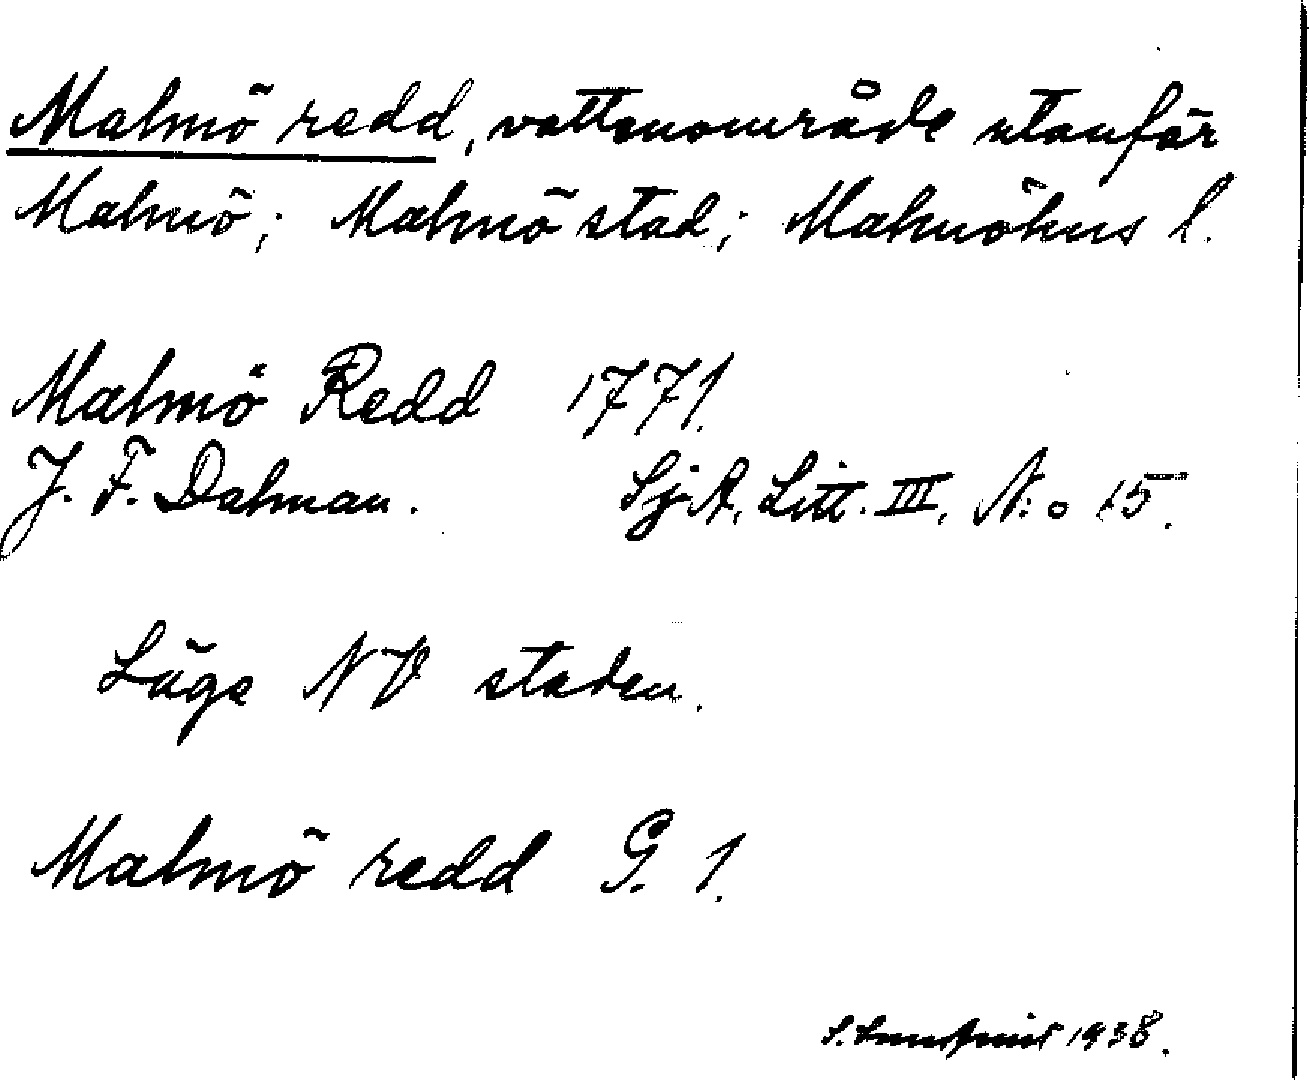 Malmö redd, vattenområde utanför
Malmö; Malmö stad; Malmöhus l.
Malmö Redd 1771.
J. F. Dalman. Sj. A. Litt. III. N:o 15.
Läge NV staden.
Malmö redd G. 1.
S. 1938.